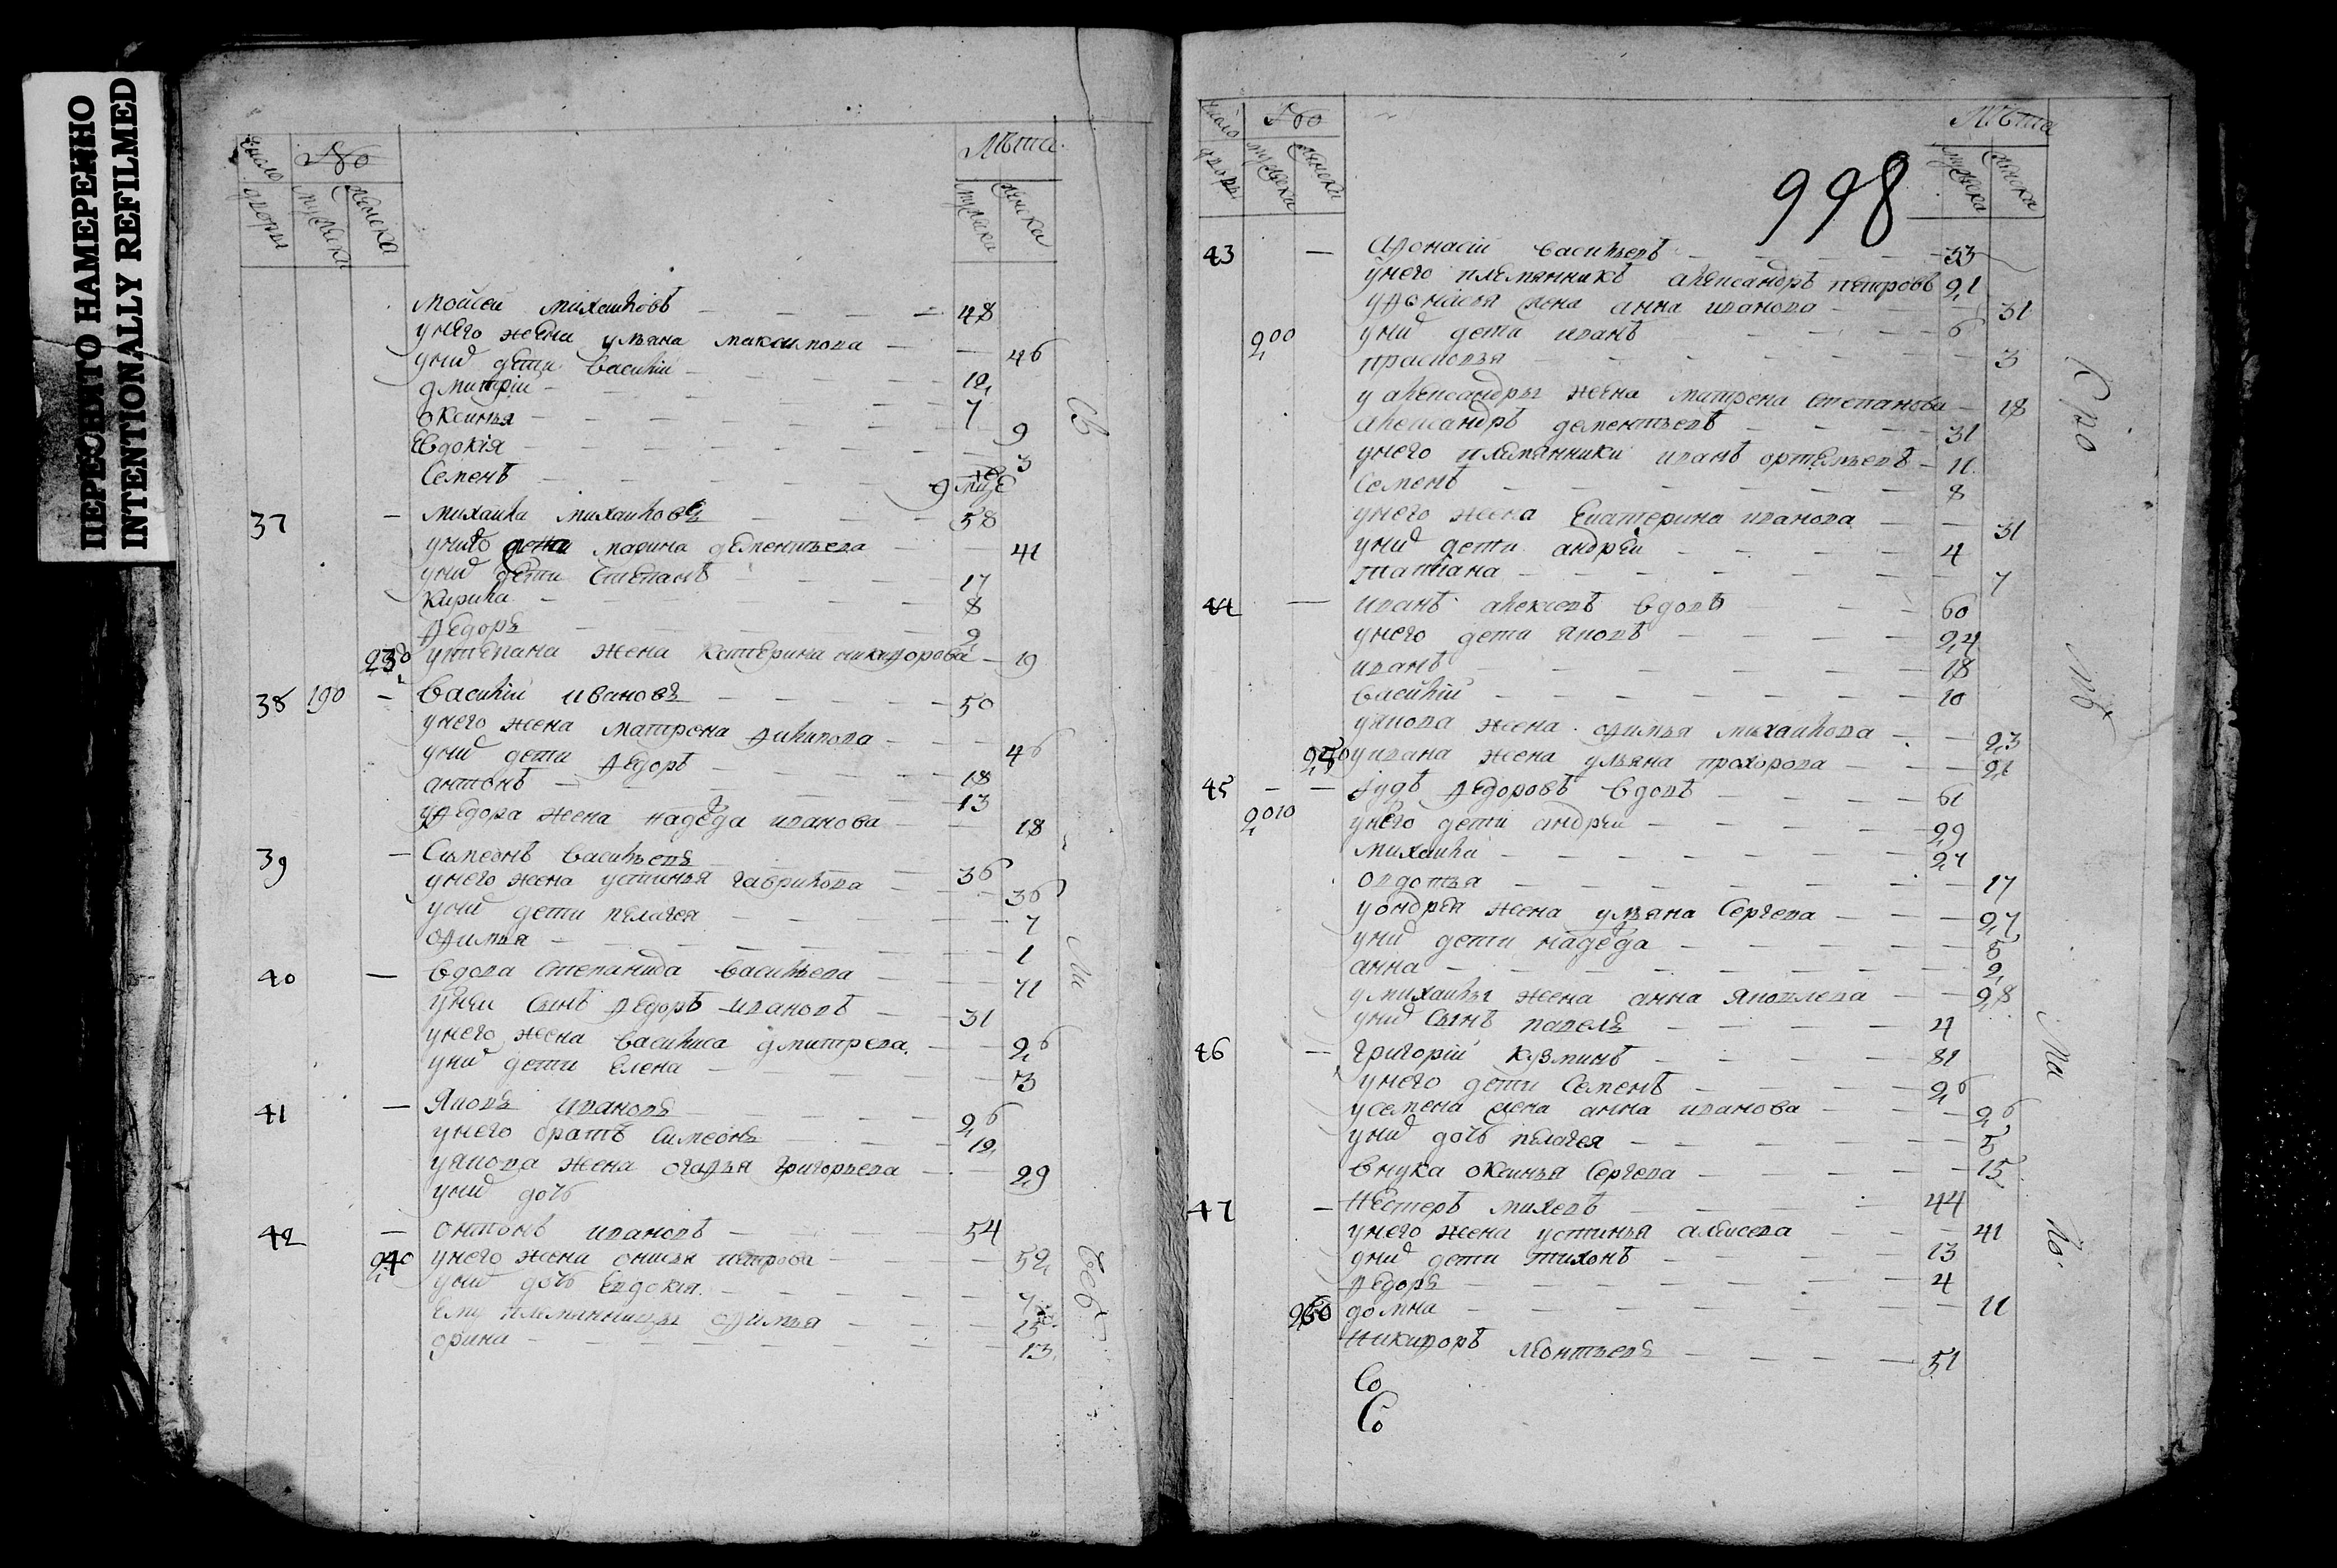 ПЕРЕСНЯТО НАМЕРЕННО
INTENTIONALLY REFILMED
число дворы
№
мужска
женска
Лѣта
мужска
женска
Моисеи Михаиловъ 48
унего жена ульяна максимова 46
унид дети василіи 12
дмитріи 7
оксинья 9
Евдокія 3
Семенъ 9
37 Михаила Михаиловъ 58
унего марина дементьева 41
унид дети Степанъ 17
Кирила 8
Ѳедоръ 2
230 устепана жена катерина никиѳорова 19
38 190 Василіи Ивановъ 50
унего жена матрена Ѳилипова 46
унид дети Ѳедоръ 18
антонъ 13
уѲедора жена надеда иванова 18
39 Симеонъ васильевъ 36
унего жена устинья гаврилова 36
унид дети пелагея 7
оѲимья 1
40 вдова степанида васильева 71
унеи сынъ Ѳедоръ ивановъ 31
унего жена василиса дмитрева 26
унид дети елена 3
41 Яковъ ивановъ 26
унего братъ симеонъ 12
уякова жена огаѲья григорьева 29
унид дочь
42 онтонъ ивановъ 54
240 унего жена онисья петрова 52
унид дочь евдокия 7
ему племянницы оѲимья 15
орина 13
Св
Ми
число дворы
№
мужска
женска
Лѣта
мужска
женска
998
43 аѲонасіи васильевъ 33
унего племянникъ александръ петровъ 21
уаѲонасья жена анна иванова 31
200 унид дети иванъ 6
прасковья 3
уалександры жена матрена степанова 18
александръ дементьевъ 31
унего племянники иванъ ортемьевъ 11
семенъ 8
унего жена екатерина иванова 31
унид дети андреи 4
татиана 7
44 иванъ алексеевъ вдовъ 60
унего дети яковъ 24
иванъ 18
василіи 10
уякова жена оѲимья михаилова 23
250 уивана жена ульяна прохорова 21
45 Ѳедоровъ вдовъ 61
2010 унего дети андреи 29
михаила 27
овдотья 17
уондрея жена ульяна сергева 27
унид дети надеда 5
анна 2
умихаилы жена анна яковлева 28
унид сынъ павелъ 4
46 григоріи кузминъ 81
унего дети семенъ 26
усемена жена анна иванова 26
унид дочь пелагея 5
внука оксинья сергева 15
47 нестеръ михевъ 44
унего жена устинья алексева 41
унид дети тихонъ 13
Ѳедоръ 4
260 домна 11
никиѲоръ леонтьевъ 51
Со
Со
Кро
На
По